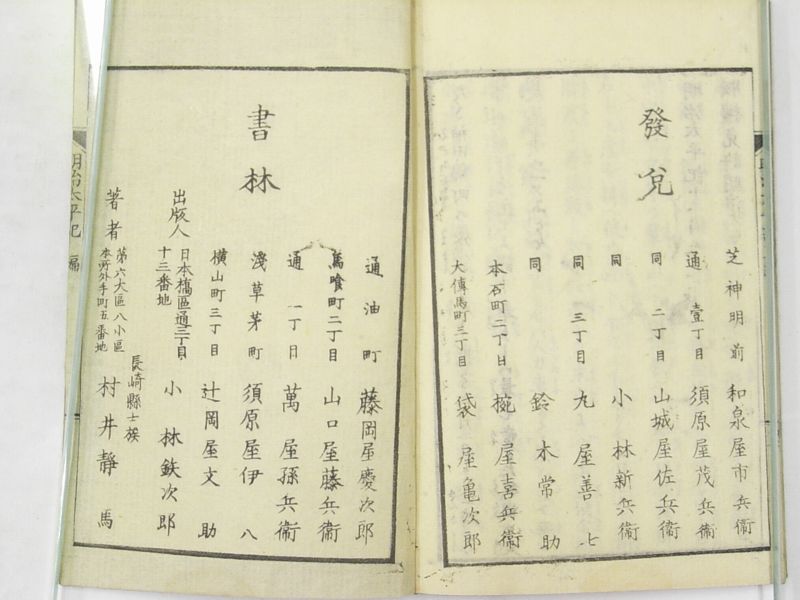 發兌
芝神明前 和泉屋市兵衞
通壹丁目 須原屋茂兵衞
同二丁目 山城屋佐兵衞
同 小林新兵衞
同三丁目 丸屋善七
同 鈴木常助
本石町二丁目 椀屋喜兵衞
大傳馬町三丁目 袋屋亀次郎
書林
通油町 藤岡屋慶次郎
馬喰町二丁目 山口屋藤兵衞
通一丁目 萬屋孫兵衞
淺草茅町 須原屋伊八
横山町三丁目 辻岡屋文助
出版人 日本橋區通三丁目
十三番地 小林鉄次郎
著者 第六大區八小區
本所外手町五番地
長崎縣士族
村井靜馬
明治太平記 編